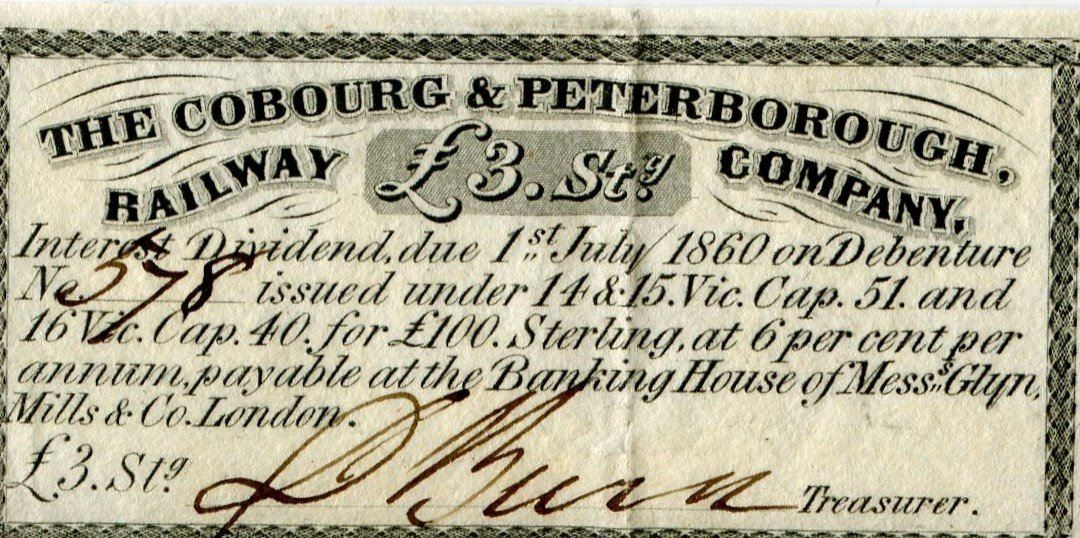 THE COBOURG & PETERBOROUGH,
RAILWAY £3. Stg COMPANY,
Interest Dividend, due 1st July 1860 on Debenture
No. 578 issued under 14 & 15. Vic. Cap. 51. and
16 Vic. Cap. 40. for £100. Sterling, at 6 per cent per
annum, payable at the Banking House of Messrs Glyn,
Mills & Co. London.
£3. Stg. D Burn Treasurer.